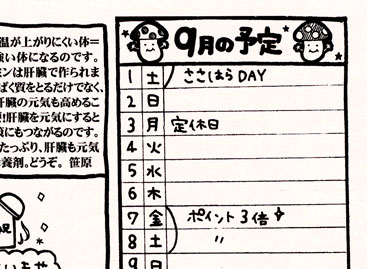 温が上がりにくい体＝
強い体になるのです。
ミンは肝臓で作られま
ぱく質をとるだけでなく、
肝臓の元気も高めるこ
!肝臓を元気にすると
にもつながるのです。
たっぷり、肝臓も元気
養剤。どうぞ。 笹原
いませ
9月の予定
1 土 ささはらDAY
2 日
3 月 定休日
4 火
5 水
6 木
7 金 ポイント3倍
8 土 〃
9 日